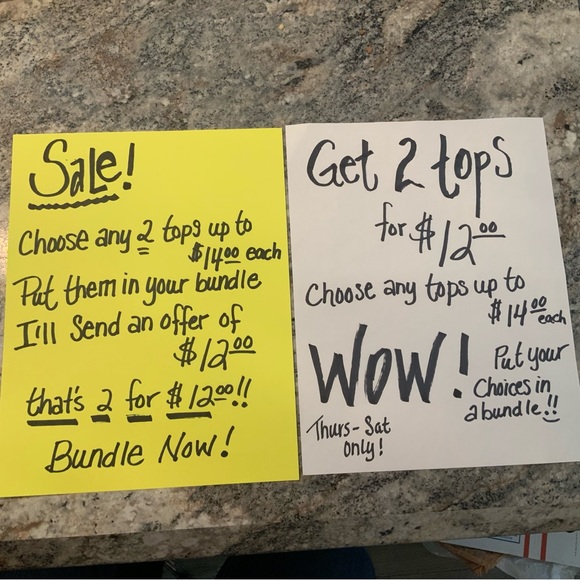 Sale!
Choose any 2 tops up to
$14.00 each
Put them in your bundle
I'll Send an offer of
$12.00
that's 2 for $12.00!!
Bundle Now!
Get 2 tops
for $12.00
Choose any tops up to
$14.00 each
WOW!
Put your
Choices in
a bundle!!
Thurs-Sat
only!